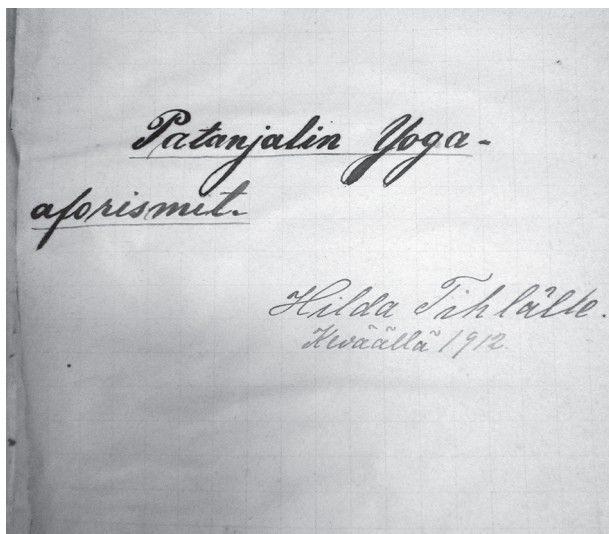 Patanjalin Yoga-
aforismit.
Hilda Tihlälle.
Keväällä 1912.